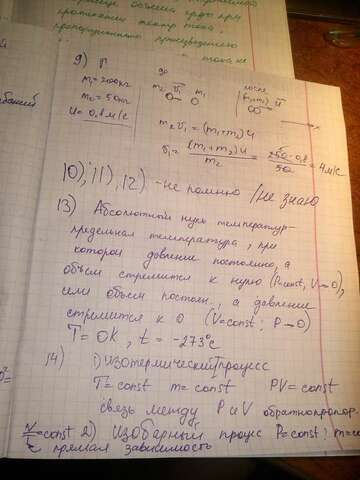 пропорционально произведению
9) Г
m₁ = 200кг
m₂ = 50кг
u = 0,8м/с
до
m₂ v̄₁ m₁
после
(m₁+m₂) ū
x
m₂v̄₁ = (m₁+m₂)u
v̄₁ = (m₁+m₂)u / m₂ = 250·0,8 / 50 = 4м/с
10), 11), 12) - не помню /не знаю
13) Абсолютный нуль температур-
предельная температура, при
которой давление постоянно, а
объем стремится к нулю (P=const, V→0),
или объем постоян., а давление
стремится к 0 (V=const; P→0)
T=0K, t = -273°c
14) 1) изотермический процесс
T=const m=const PV=const
связь между P и V обратнопропор.
V/T=const 2) изобарный процес P=const; m=co
- прямая зависимость